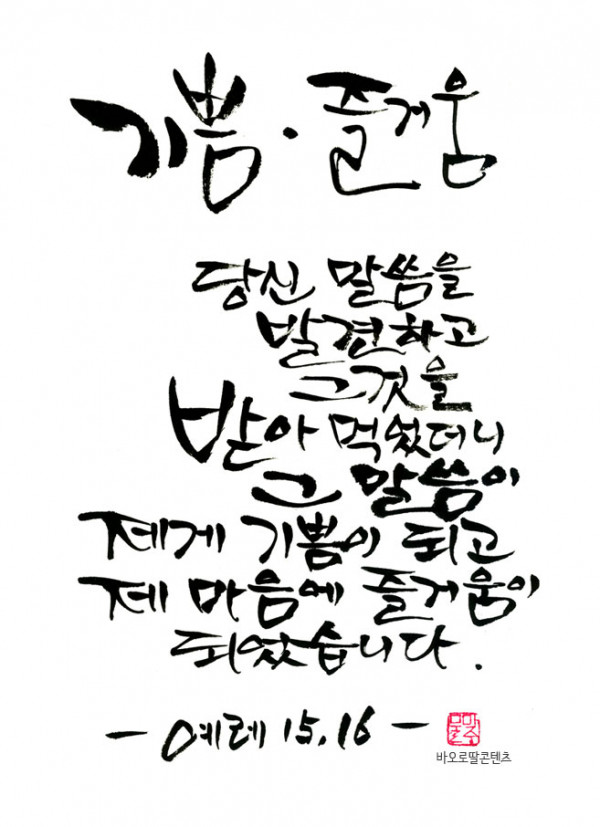 기쁨 · 즐거움
당신 말씀을
발견하고
그것을
받아 먹었더니
그 말씀이
제게 기쁨이 되고
제 마음에 즐거움이
되었습니다.
- 예레 15,16 -
바오로딸콘텐츠